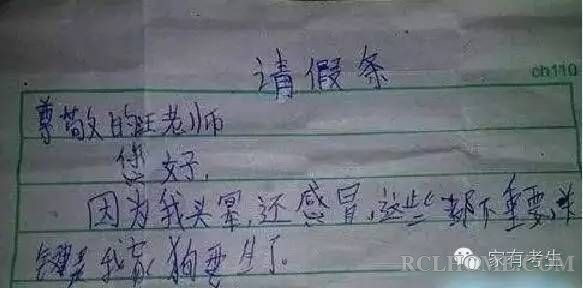 请假条
ch110
尊敬的汪老师
您好，
因为我头晕，还感冒，这些都不重要，关
键是我家狗要生了。
家有考生
RCLHOME.COM